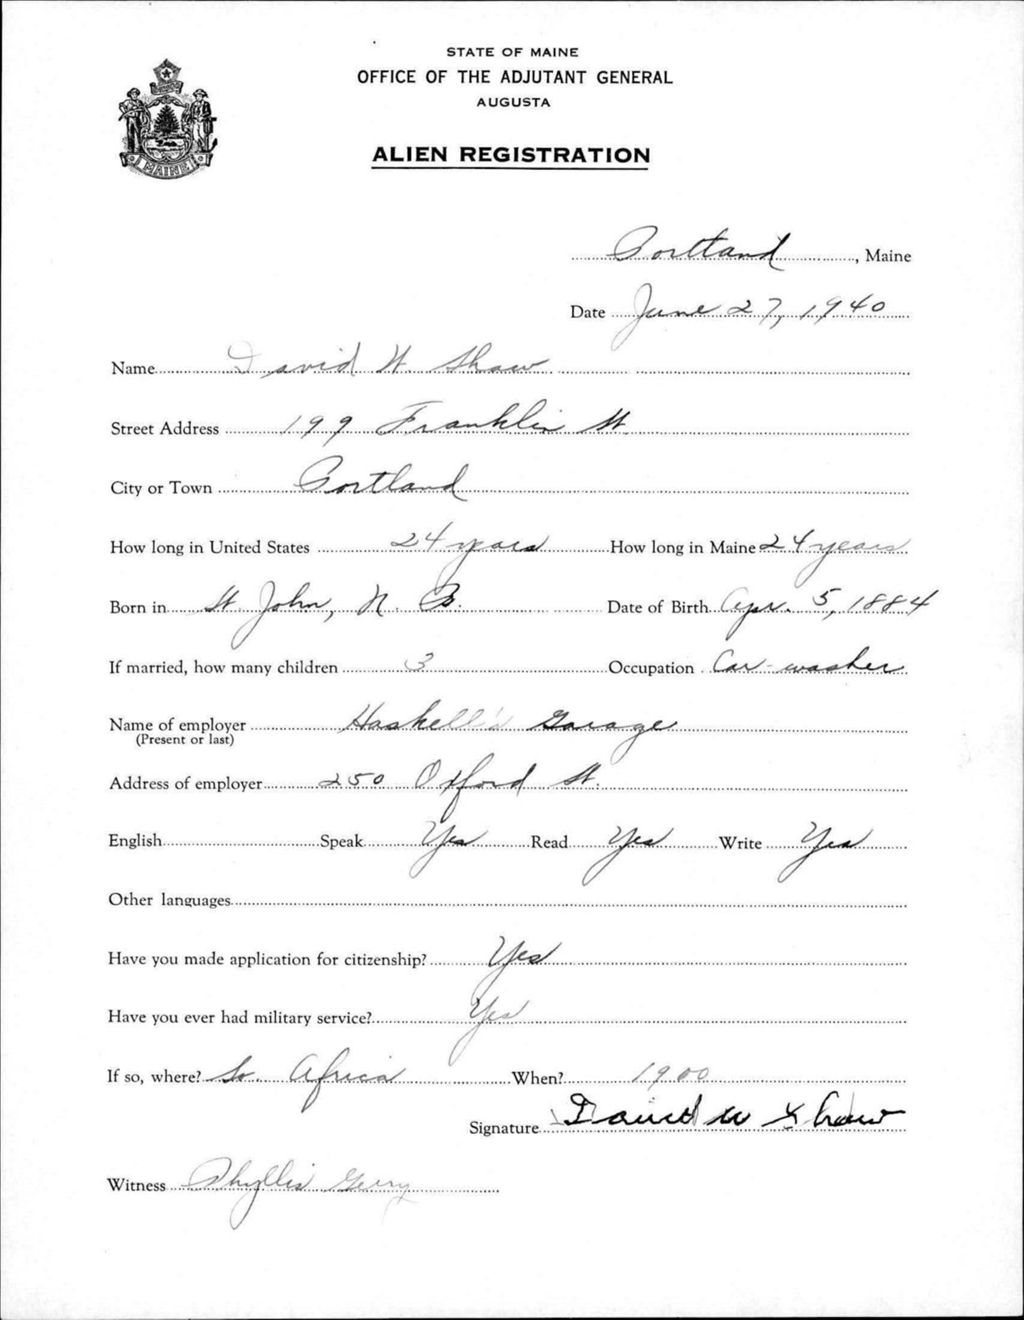 STATE OF MAINE
OFFICE OF THE ADJUTANT GENERAL
AUGUSTA
ALIEN REGISTRATION
MAINE
Portland, Maine
Date June 27, 1940
Name David W. Shaw
Street Address 199 Franklin St.
City or Town Portland
How long in United States 24 years How long in Maine 24 years
Born in St. John, N. B. Date of Birth Apr. 5, 1884
If married, how many children 3 Occupation Car-washer
Name of employer Haskell's Garage
(Present or last)
Address of employer 250 Oxford St.
English Speak Yes Read Yes Write Yes
Other languages
Have you made application for citizenship? Yes
Have you ever had military service? Yes
If so, where? So. Africa When? 1900
Signature David W Shaw
Witness Phyllis Gerry